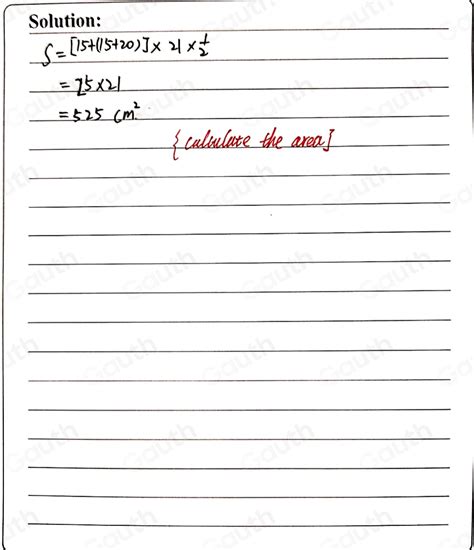 Solution:
S = [15+(15+20)] × 21 × 1/2
= 25×21
= 525 cm².
{calculate the area]